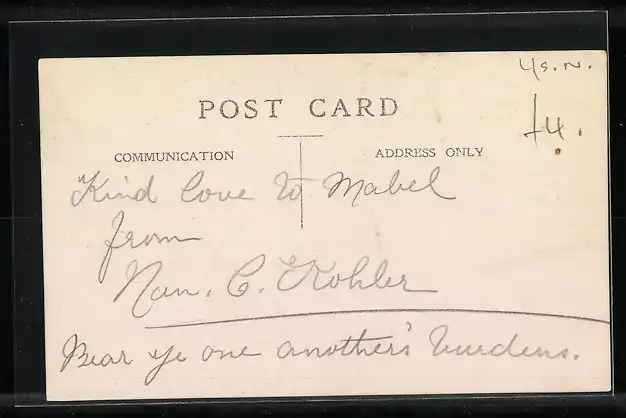 4s. N.
POST CARD
£4.
COMMUNICATION
ADDRESS ONLY
Kind love to Mabel
from
Nan. C. Kohler
Bear ye one another's burdens.